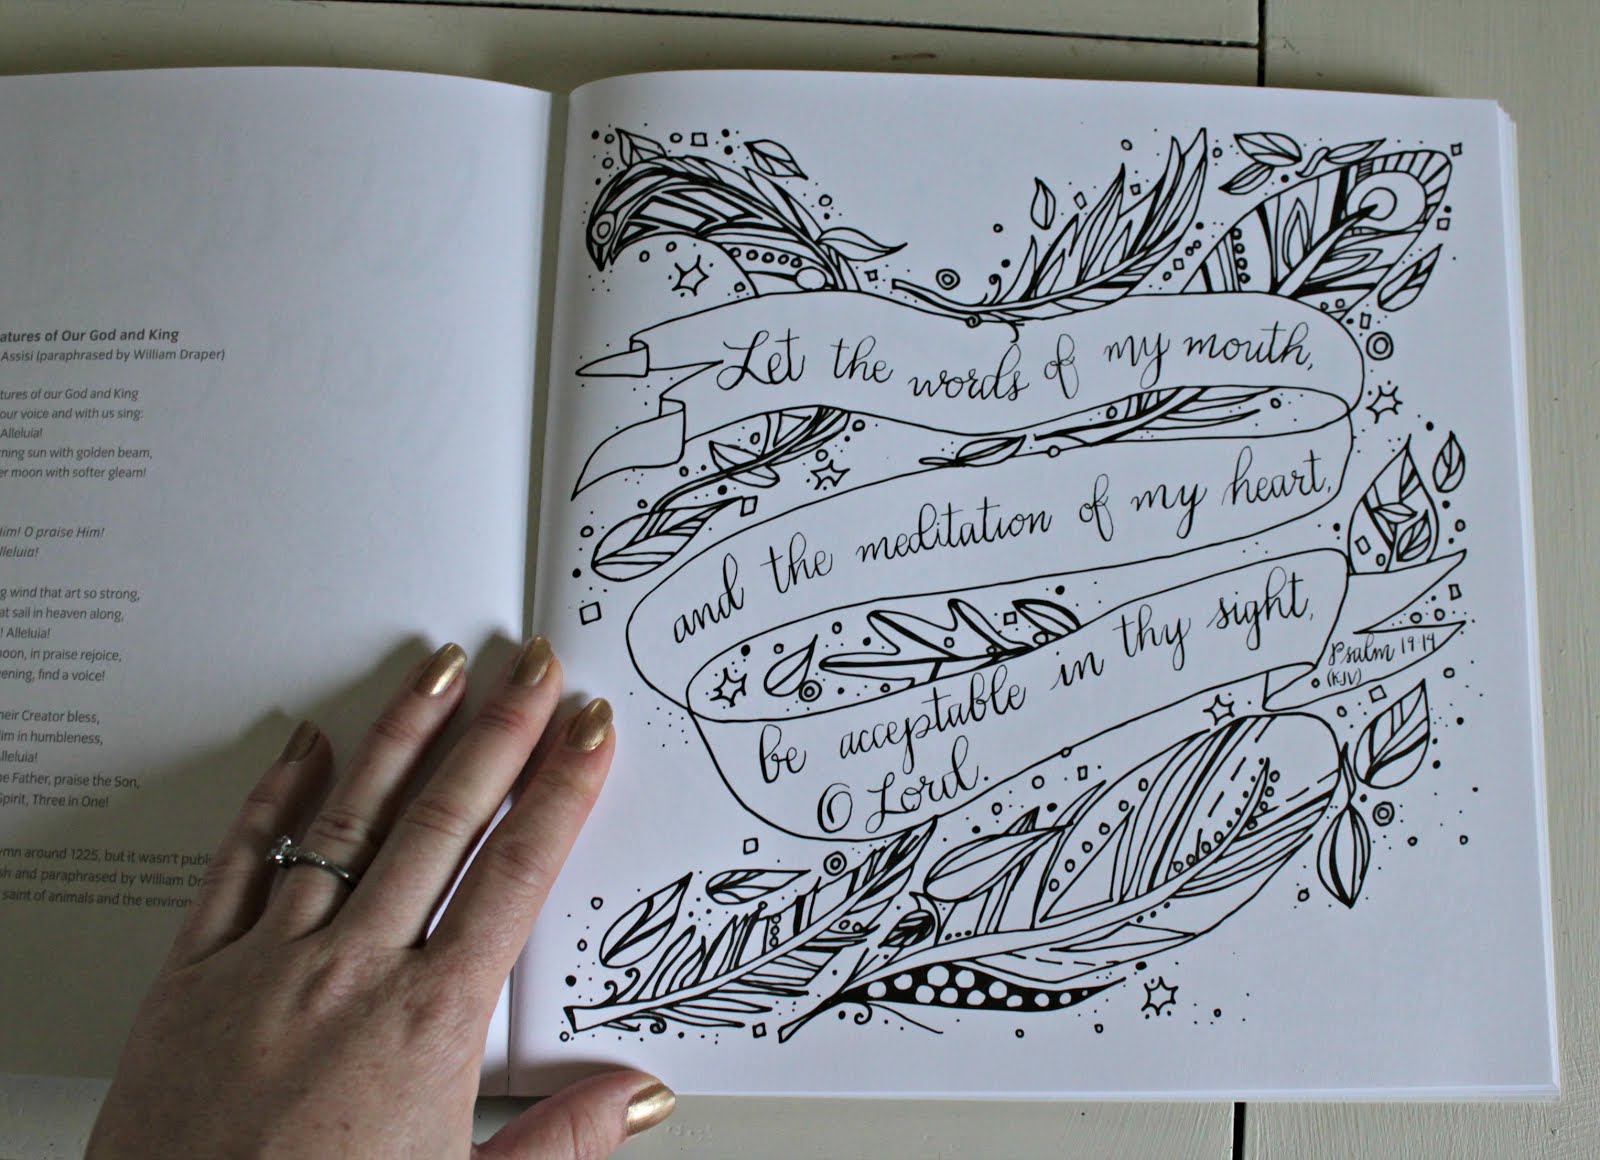 atures of Our God and King
Assisi (paraphrased by William Draper)
tures of our God and King
our voice and with us sing:
Alleluia!
rning sun with golden beam,
er moon with softer gleam!
Him! O praise Him!
lleluia!
g wind that art so strong,
at sail in heaven along,
! Alleluia!
noon, in praise rejoice,
ening, find a voice!
heir Creator bless,
Him in humbleness,
lleluia!
he Father, praise the Son,
Spirit, Three in One!
ymn around 1225, but it wasn't publ
sh and paraphrased by William Dr
saint of animals and the environ
Let the words of my mouth,
and the meditation of my heart,
be acceptable in thy sight,
O Lord.
Psalm 19:14
(KJV)